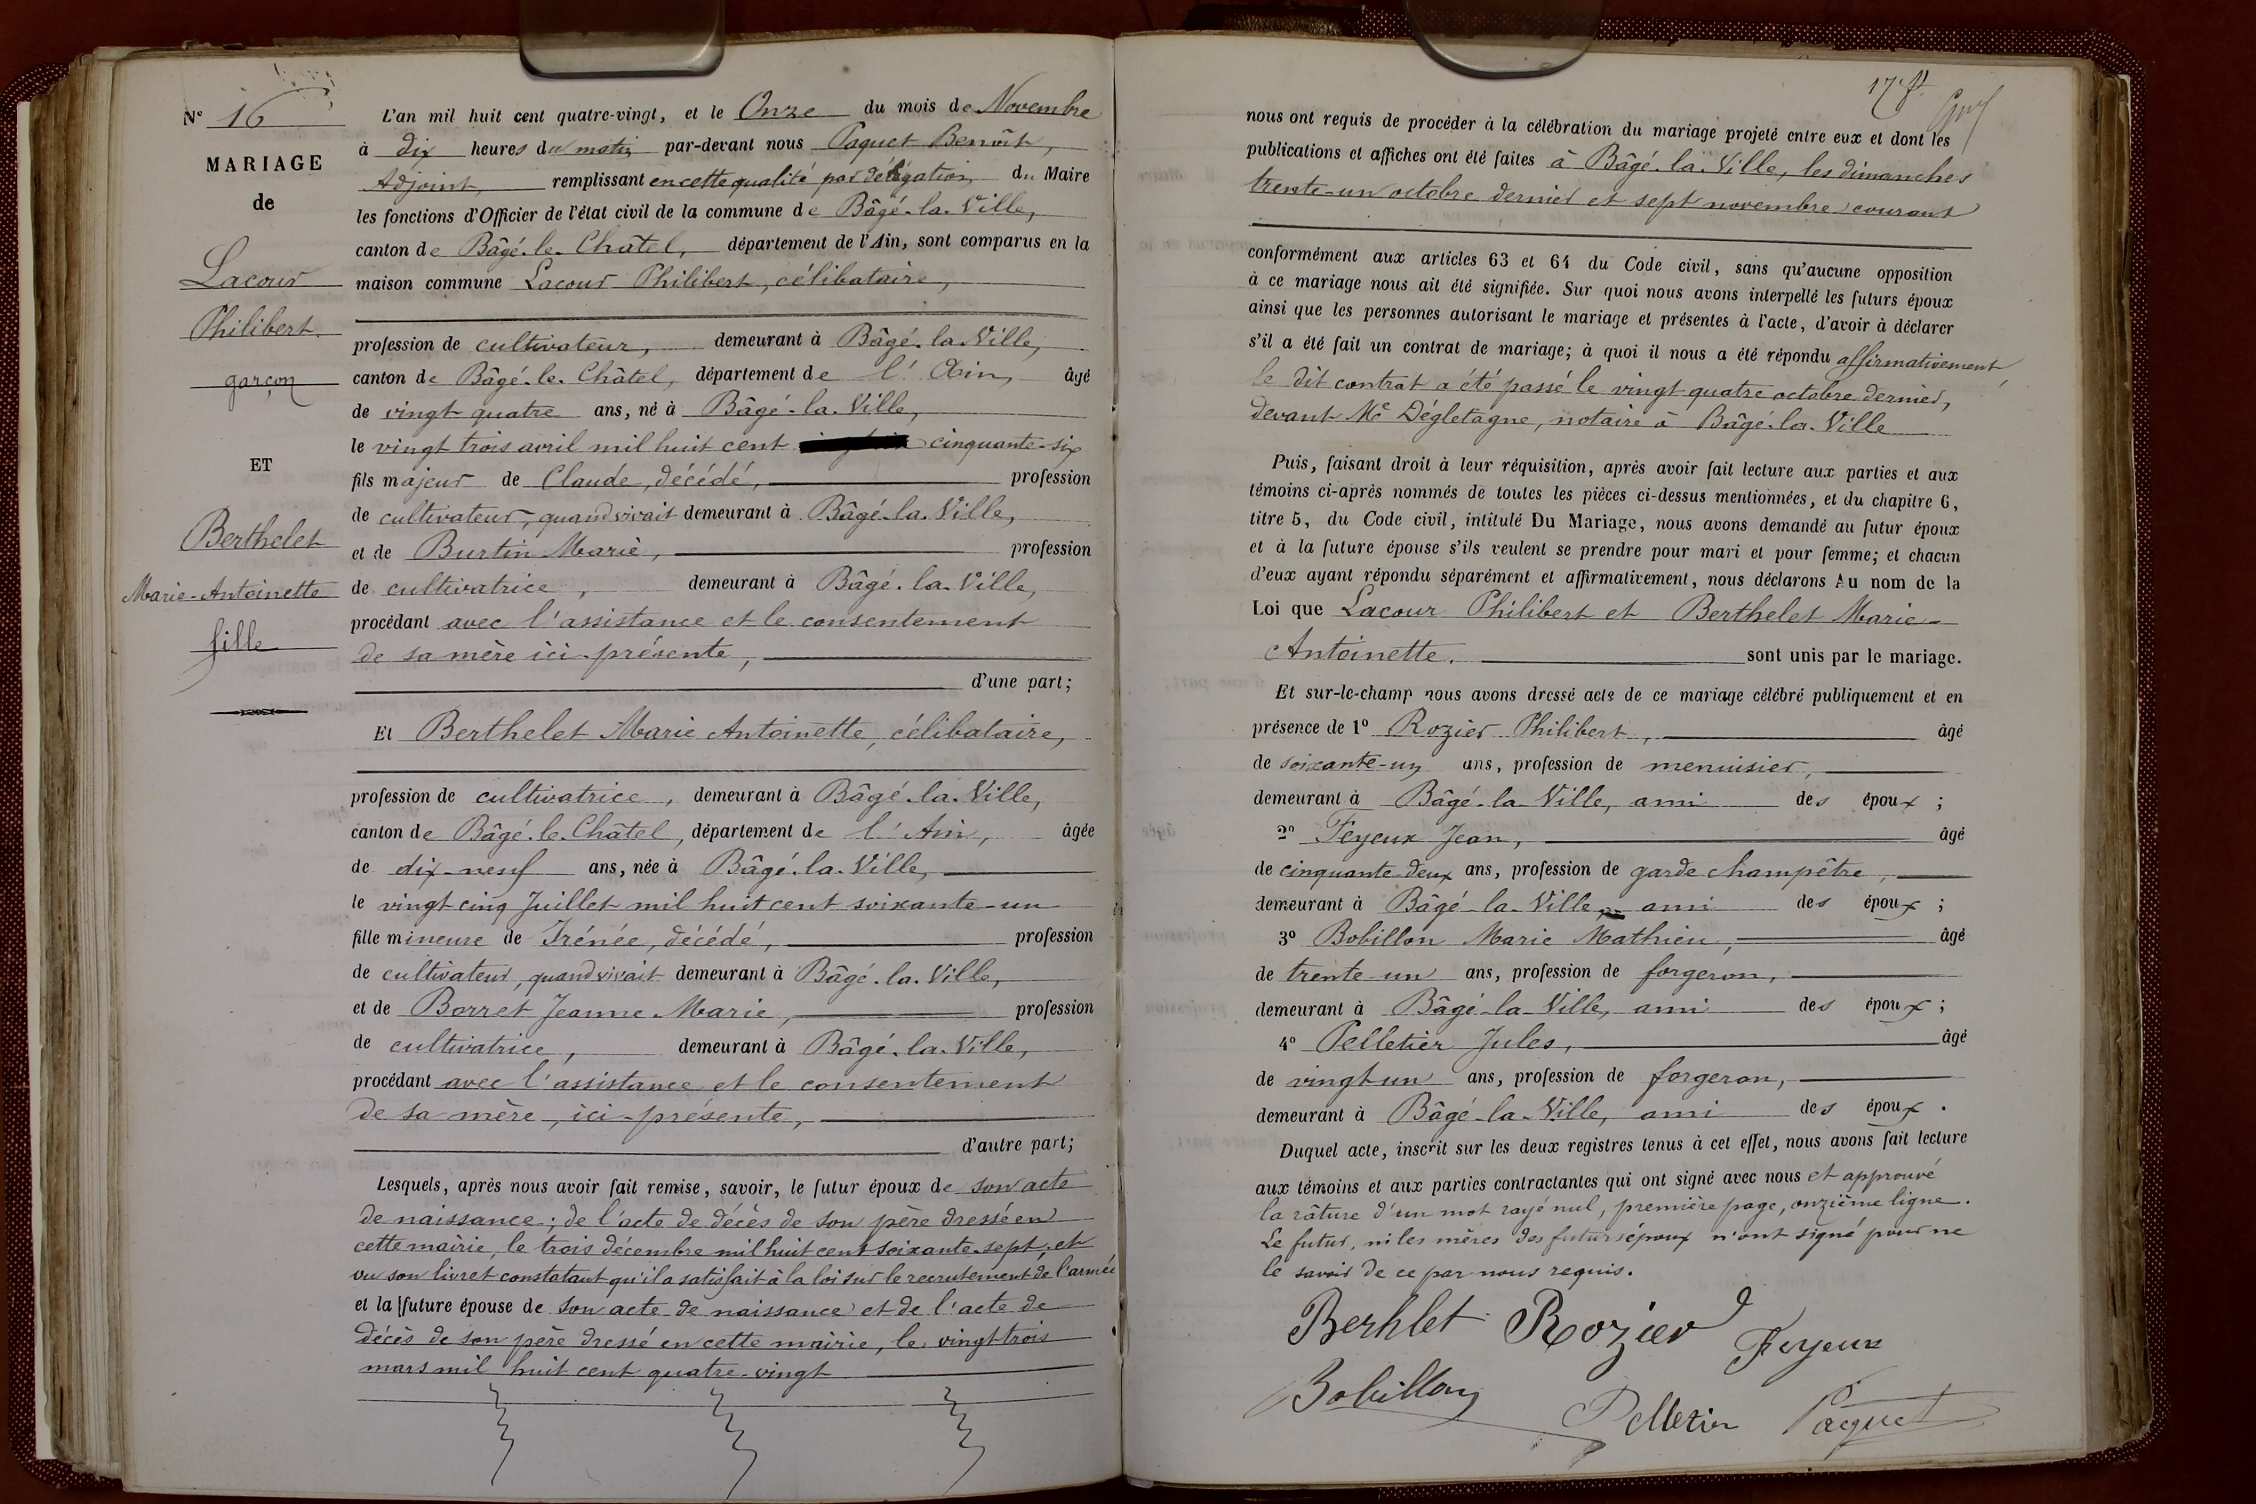 N° 16
MARIAGE
de
Lacour
Philibert
garçon
ET
Berthelet
Marie-Antoinette
fille
L'an mil huit cent quatre-vingt, et le Onze du mois de Novembre
à dix heures du matin par-devant nous Paquet Benoît,
Adjoint, remplissant en cette qualité par délégation du Maire
les fonctions d'Officier de l'état civil de la commune de Bâgé-la-Ville,
canton de Bâgé-le-Châtel, département de l'Ain, sont comparus en la
maison commune Lacour Philibert, célibataire,
profession de cultivateur, demeurant à Bâgé-la-Ville,
canton de Bâgé-le-Châtel, département de l'Ain, âgé
de vingt-quatre ans, né à Bâgé-la-Ville,
le vingt trois avril mil huit cent cinquante-six
fils majeur de Claude, décédé, profession
de cultivateur, quand vivait demeurant à Bâgé-la-Ville,
et de Burtin Marie, profession
de cultivatrice, demeurant à Bâgé-la-Ville,
procédant avec l'assistance et le consentement
de sa mère ici-présente,
d'une part;
Et Berthelet Marie Antoinette, célibataire,
profession de cultivatrice, demeurant à Bâgé-la-Ville,
canton de Bâgé-le-Châtel, département de l'Ain, âgée
de dix-neuf ans, née à Bâgé-la-Ville,
le vingt cinq Juillet mil huit cent soixante-un
fille mineure de Irénée, décédé, profession
de cultivateur, quand vivait demeurant à Bâgé-la-Ville,
et de Borret Jeanne-Marie, profession
de cultivatrice, demeurant à Bâgé-la-Ville,
procédant avec l'assistance et le consentement
de sa mère, ici-présente,
d'autre part;
Lesquels, après nous avoir fait remise, savoir, le futur époux de son acte
de naissance; de l'acte de décès de son père dressé en
cette mairie, le trois décembre mil huit cent soixante-sept, et
vu son livret constatant qu'il a satisfait à la loi sur le recrutement de l'armée
et la future épouse de son acte de naissance et de l'acte de
décès de son père dressé en cette mairie, le vingt-trois
mars mil huit cent quatre-vingt
nous ont requis de procéder à la célébration du mariage projeté entre eux et dont les
publications et affiches ont été faites à Bâgé-la-Ville, les dimanches
trente-un octobre dernier et sept novembre courant
conformément aux articles 63 et 64 du Code civil, sans qu'aucune opposition
à ce mariage nous ait été signifiée. Sur quoi nous avons interpellé les futurs époux
ainsi que les personnes autorisant le mariage et présentes à l'acte, d'avoir à déclarer
s'il a été fait un contrat de mariage; à quoi il nous a été répondu affirmativement,
le dit contrat a été passé le vingt quatre octobre dernier,
devant Me Dégletagne, notaire à Bâgé-la-Ville
Puis, faisant droit à leur réquisition, après avoir fait lecture aux parties et aux
témoins ci-après nommés de toutes les pièces ci-dessus mentionnées, et du chapitre 6,
titre 5, du Code civil, intitulé Du Mariage, nous avons demandé au futur époux
et à la future épouse s'ils veulent se prendre pour mari et pour femme; et chacun
d'eux ayant répondu séparément et affirmativement, nous déclarons Au nom de la
Loi que Lacour Philibert et Berthelet Marie-
Antoinette. sont unis par le mariage.
Et sur-le-champ nous avons dressé acte de ce mariage célébré publiquement et en
présence de 1° Rozier Philibert, âgé
de soixante-un ans, profession de menuisier,
demeurant à Bâgé-la-Ville, ami des époux;
2° Feyeux Jean, âgé
de cinquante-deux ans, profession de garde champêtre,
demeurant à Bâgé-la-Ville, ami des époux;
3° Bobillon Marie Mathieu, âgé
de trente-un ans, profession de forgeron,
demeurant à Bâgé-la-Ville, ami des époux;
4° Pelletier Jules, âgé
de vingt-un ans, profession de forgeron,
demeurant à Bâgé-la-Ville, ami des époux.
Duquel acte, inscrit sur les deux registres tenus à cet effet, nous avons fait lecture
aux témoins et aux parties contractantes qui ont signé avec nous et approuvé
la râture d'un mot rayé nul, première page, onzième ligne.
Le futur, ni les mères des futurs époux n'ont signé pour ne
le savoir de ce par nous requis.
Berhlet Rozier Feyeux
Bobillon Pelletier Paquet